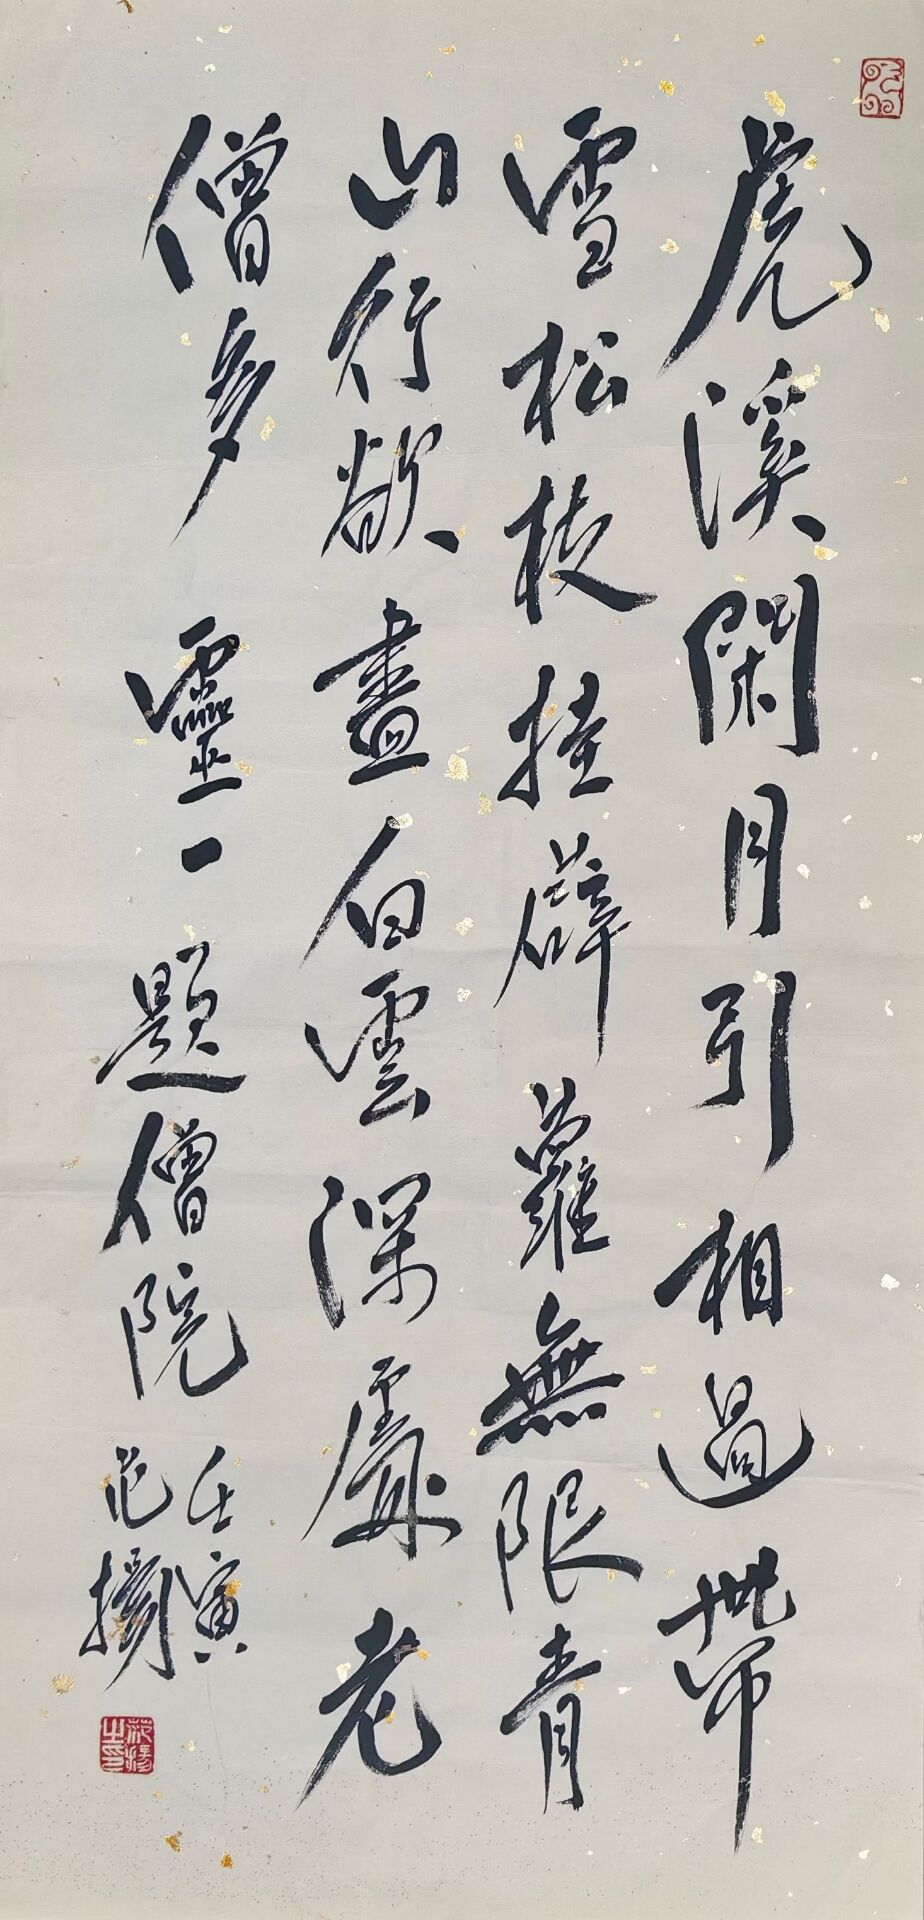 虎溪閑月引相過帶
雪松枝挂薜蘿無限青
山行欲盡白雲深處老
僧多 靈一題僧院
壬寅
范揚
范揚之印